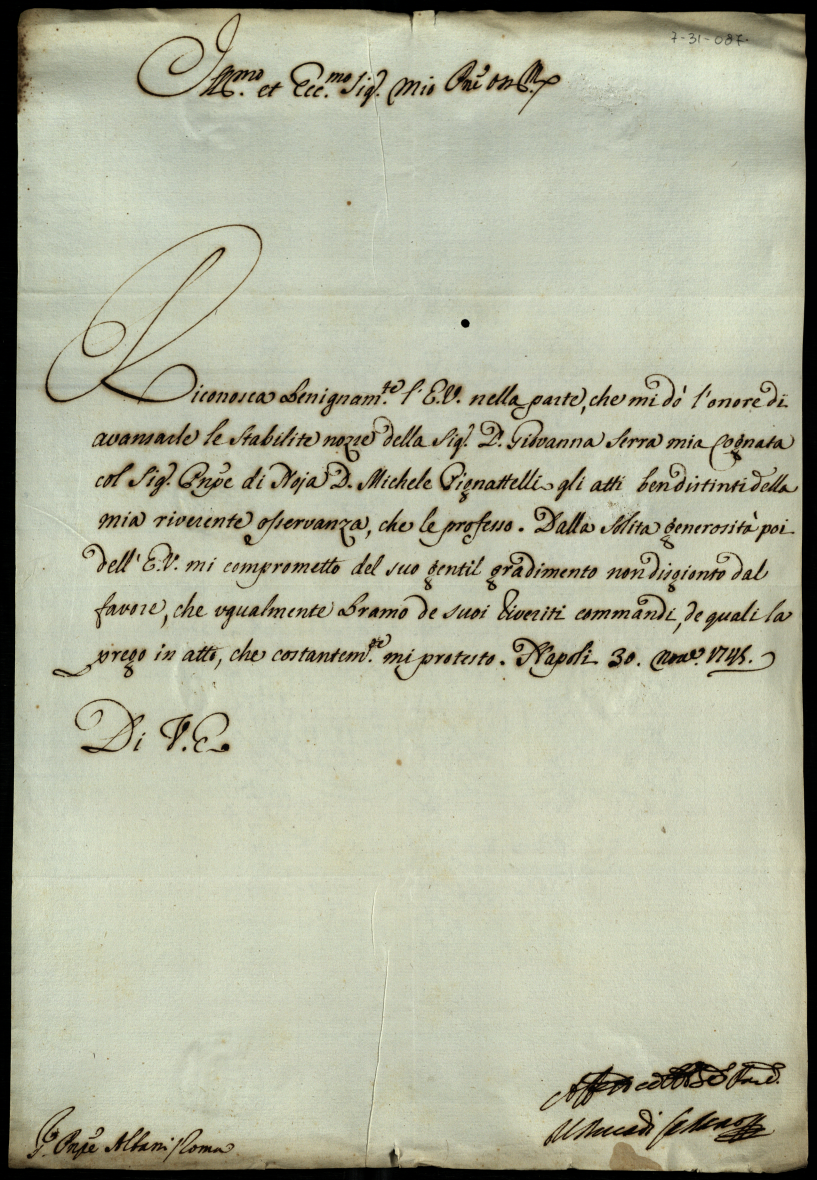 7-31-087.
Ill.mo et Ecc.mo Sig.r Mio Pne
Riconosca benignam.te l'E.V. nella parte, che mi dò l'onore di
avansarle le stabilite nozze della Sig.ra D. Giovanna Serra mia Cognata
col Sig.r Pnpe di Noja D. Michele Pignattelli gli atti ben distinti della
mia riverente osservanza, che le professo. Dalla solita generosità poi
dell'E.V. mi comprometto del suo gentil gradimento non disgionto dal
favore, che ugualmente bramo de suoi riveriti commandi, de quali la
prego in atto, che costantem.te mi protesto. Napoli 30. Nov.e 1745.
Di V.E.
Pnpe Albani Roma